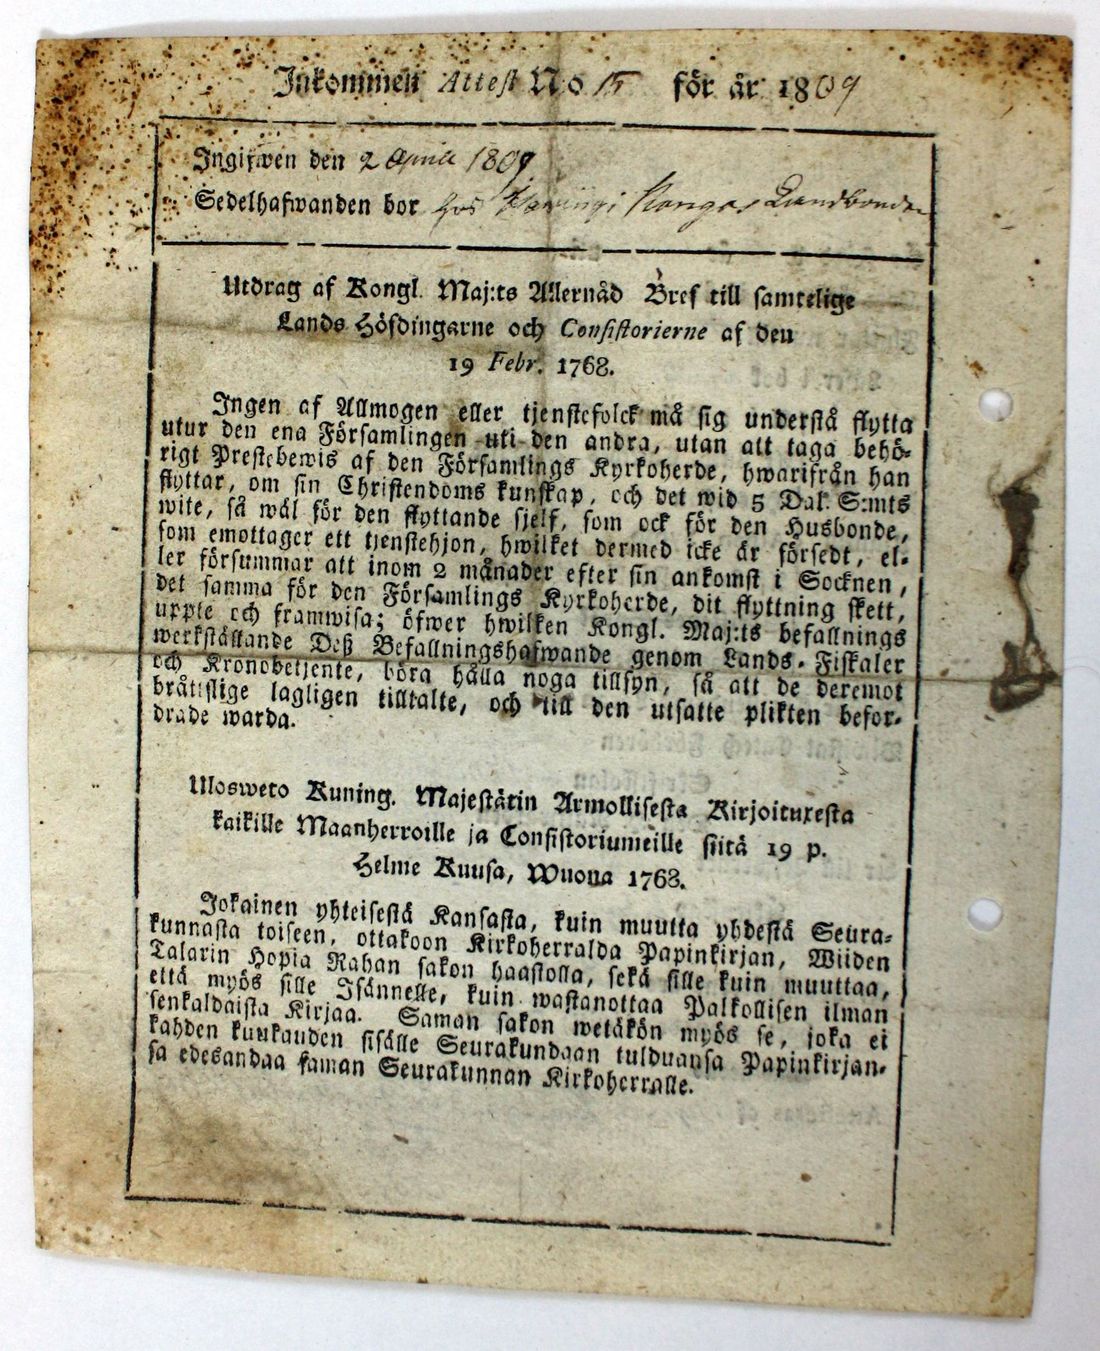 Inkommen Attest No 15 för år 1809
Ingifwen den 2 April 1809
Sedelhafwanden bor hos Kangas Landbonden
Utdrag af Kongl. Maj:ts Allernåd Bref till samtelige
Lands Höfdingarne och Consistorierne af den
19 Febr. 1768.
Ingen af Allmogen eller tjenstefolck må sig understå flytta
utur den ena Församlingen uti den andra, utan att taga behö-
rigt Prestebewis af den Församlings Kyrkoherde, hwarifrån han
flyttar, om sin Christendoms kunskap, och det wid 5 Dal. S:mts
wite, så wäl för den flyttande sjelf, som ock för den Husbonde,
som emottager ett tjenstehjon, hwilket dermed icke är försedt, el-
ler försummar att inom 2 månader efter sin ankomst i Socknen,
det samma för den Församlings Kyrkoherde, dit flyttning skett,
uppte och framwisa; öfwer hwilken Kongl. Maj:ts befallnings
werkställande Deß Befallningshafwande genom Lands-Fiskaler
och Kronobetjente, böra hålla noga tillsyn, så att de deremot
bråttslige lagligen tilltalte, och till den utsatte plikten befor-
drade warda.
Ulosweto Kuning. Majestätin Armollisesta Kirjoituxesta
kaikille Maanherroille ja Consistoriumeille siitä 19 p.
Helme Kuusa, Wuona 1768.
Jokainen yhteisestä Kansasta, kuin muutta yhdestä Seura-
kunnasta toiseen, ottakoon Kirkoherralda Papinkirjan, Wiiden
Talarin Hopia Rahan sakon haastolla, sekä sille kuin muuttaa,
että myös sille Isännelle, kuin wastanottaa Palkollisen ilman
senkaldaista Kirjaa. Saman sakon wetäkön myös se, joka ei
kahden kuukauden sisälle Seurakundaan tulduansa Papinkirjan-
sa edesandaa saman Seurakunnan Kirkoherralle.